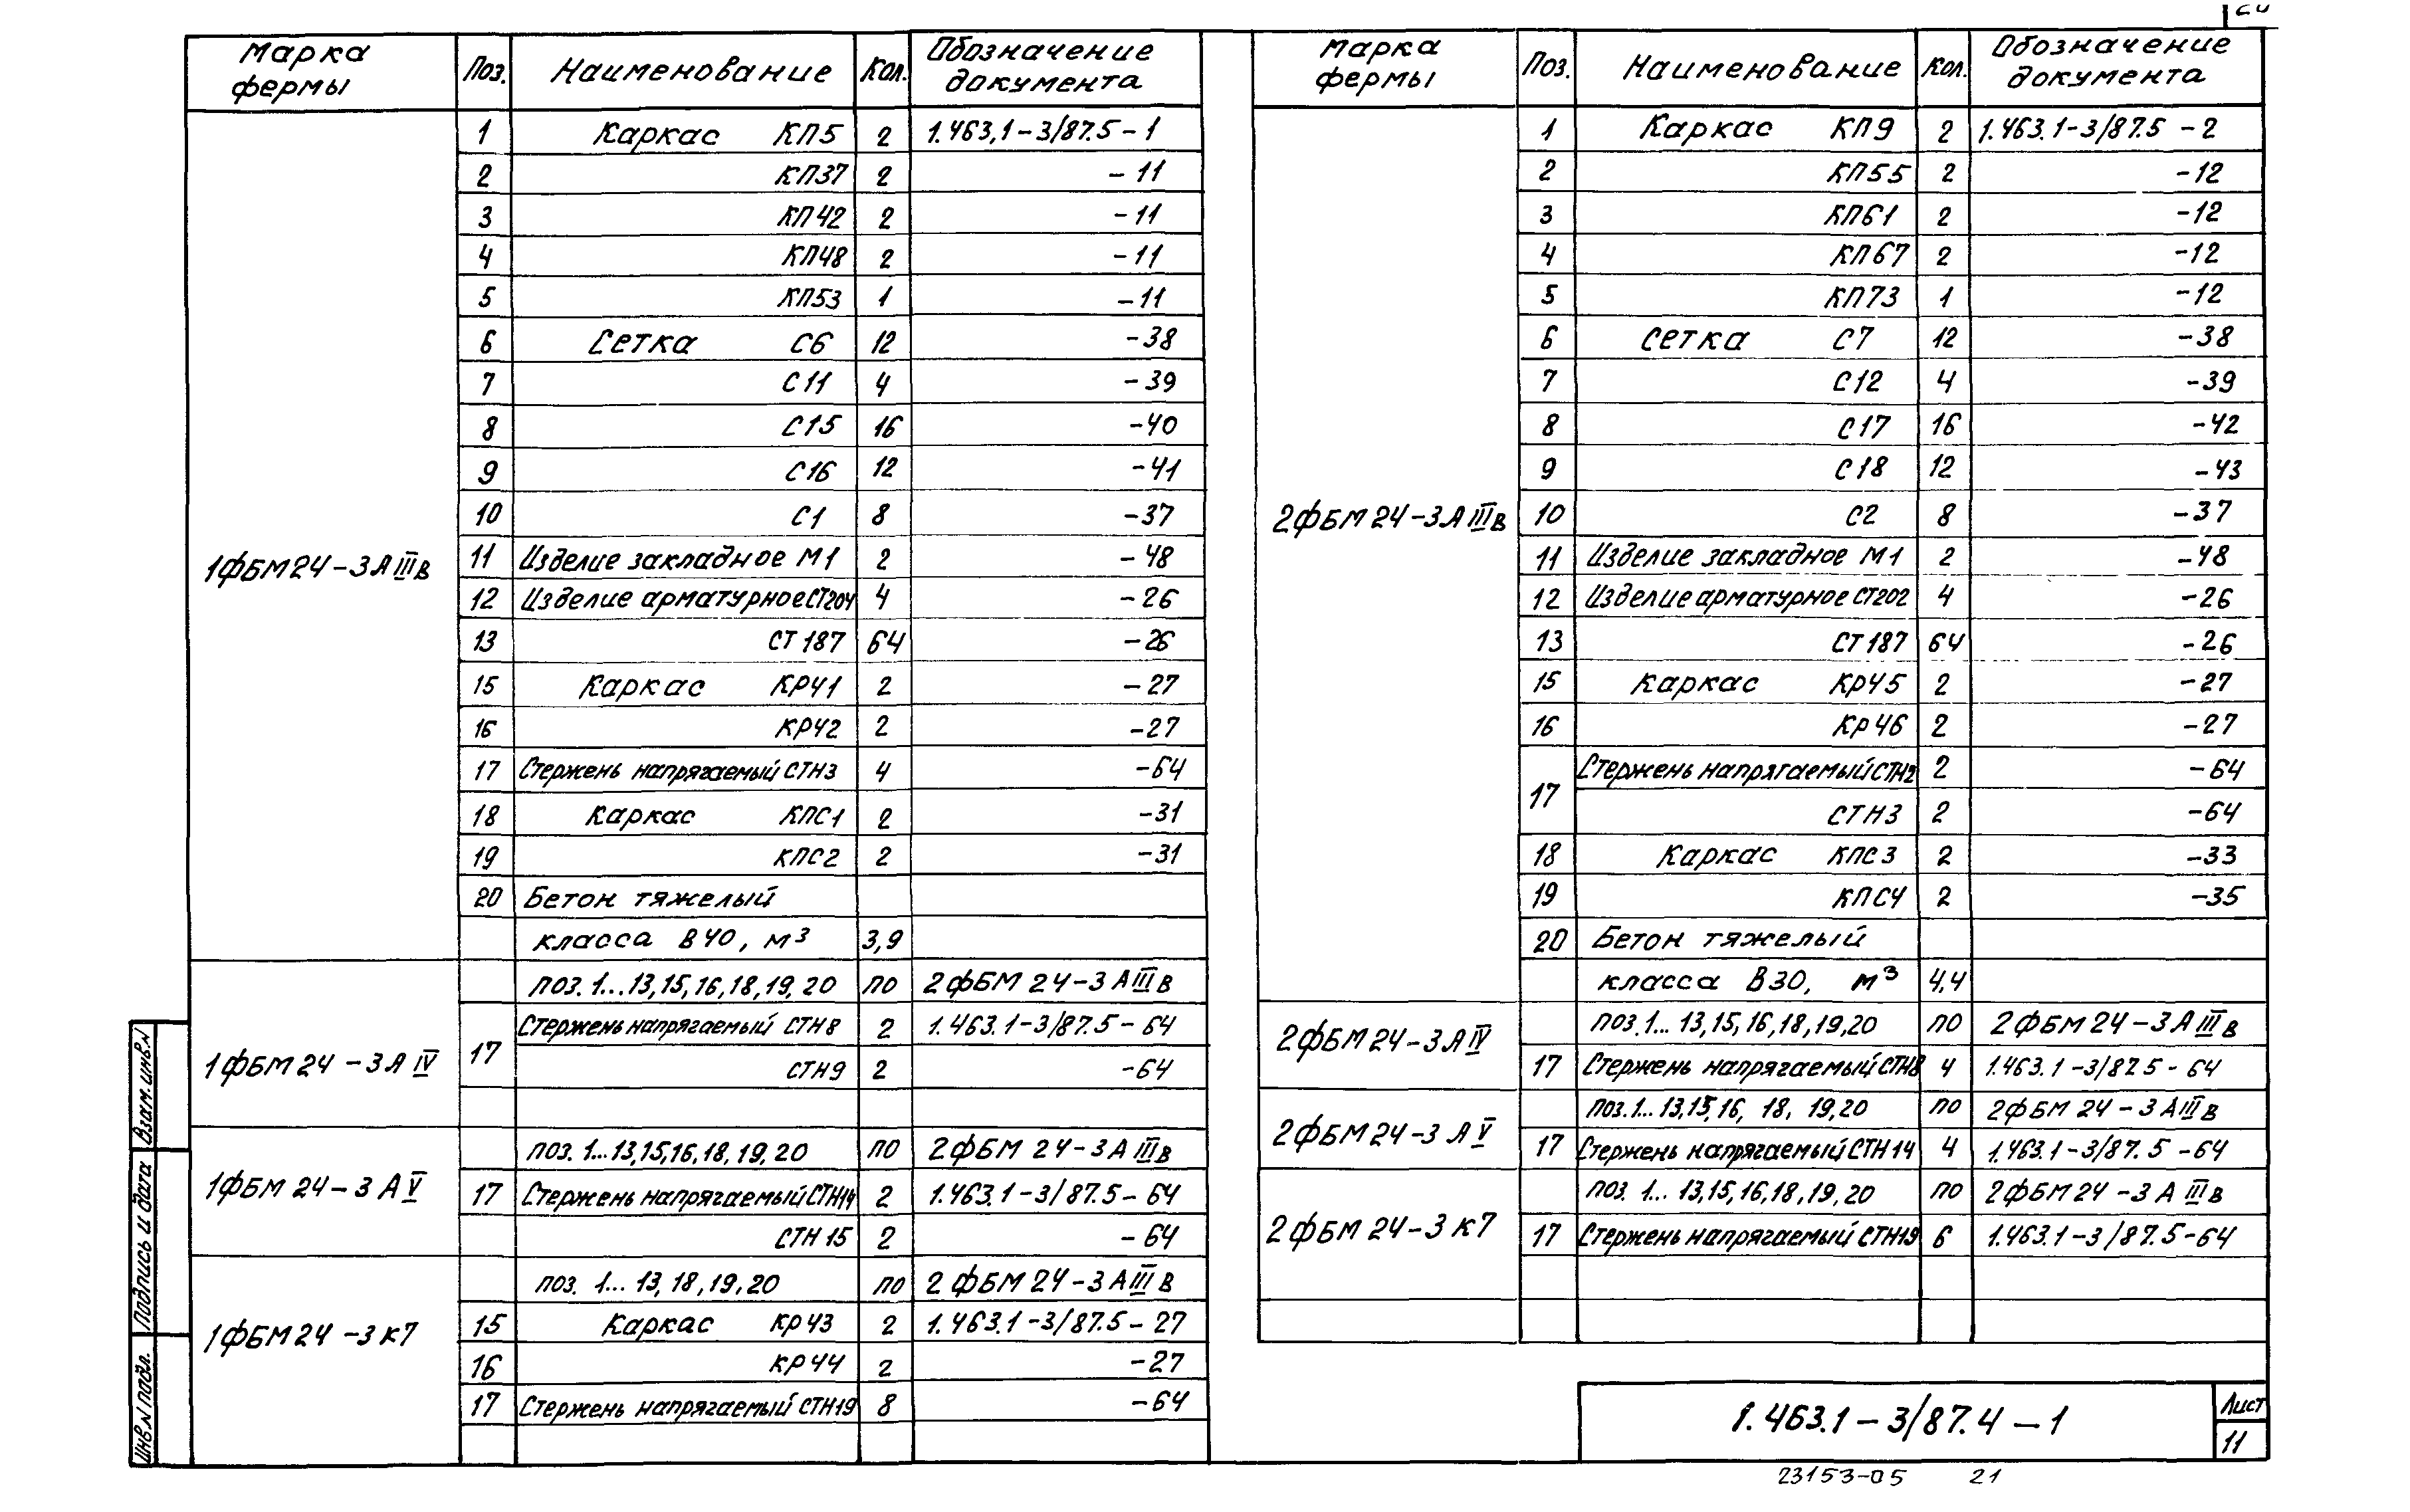 Марка фермы Поз. Наименование Кол. Обозначение документа
1ФБМ24-3АIIIв
1 Каркас КП5 2 1.463.1-3/87.5-1
2 КП37 2 -11
3 КП42 2 -11
4 КП48 2 -11
5 КП53 1 -11
6 Сетка С6 12 -38
7 С11 4 -39
8 С15 16 -40
9 С16 12 -41
10 С1 8 -37
11 Изделие закладное М1 2 -48
12 Изделие арматурное СТ204 4 -26
13 СТ187 64 -26
15 Каркас КР41 2 -27
16 КР42 2 -27
17 Стержень напрягаемый СТН3 4 -64
18 Каркас КПС1 2 -31
19 КПС2 2 -31
20 Бетон тяжелый
класса В40, м³ 3,9
1ФБМ24-3АIV
поз. 1...13,15,16,18,19,20 по 2ФБМ24-3АIIIв
17 Стержень напрягаемый СТН8 2 1.463.1-3/87.5-64
СТН9 2 -64
1ФБМ24-3АV
поз. 1...13,15,16,18,19,20 по 2ФБМ24-3АIIIв
17 Стержень напрягаемый СТН14 2 1.463.1-3/87.5-64
СТН15 2 -64
1ФБМ24-3К7
поз. 1...13,18,19,20 по 2ФБМ24-3АIIIв
15 Каркас КР43 2 1.463.1-3/87.5-27
16 КР44 2 -27
17 Стержень напрягаемый СТН19 8 -64
Марка фермы Поз. Наименование Кол. Обозначение документа
2ФБМ24-3АIIIв
1 Каркас КП9 2 1.463.1-3/87.5-2
2 КП55 2 -12
3 КП61 2 -12
4 КП67 2 -12
5 КП73 1 -12
6 Сетка С7 12 -38
7 С12 4 -39
8 С17 16 -42
9 С18 12 -43
10 С2 8 -37
11 Изделие закладное М1 2 -48
12 Изделие арматурное СТ202 4 -26
13 СТ187 64 -26
15 Каркас КР45 2 -27
16 КР46 2 -27
17 Стержень напрягаемый СТН2 2 -64
СТН3 2 -64
18 Каркас КПС3 2 -33
19 КПС4 2 -35
20 Бетон тяжелый
класса В30, м³ 4,4
2ФБМ24-3АIV
поз. 1...13,15,16,18,19,20 по 2ФБМ24-3АIIIв
17 Стержень напрягаемый СТН8 4 1.463.1-3/87.5-64
2ФБМ24-3АV
поз. 1...13,15,16,18,19,20 по 2ФБМ24-3АIIIв
17 Стержень напрягаемый СТН14 4 1.463.1-3/87.5-64
2ФБМ24-3К7
поз. 1...13,15,16,18,19,20 по 2ФБМ24-3АIIIв
17 Стержень напрягаемый СТН19 6 1.463.1-3/87.5-64
Инв.N подл. Подпись и дата Взам. инв.N
1.463.1-3/87.4-1
Лист
11
23153-05 21